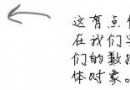 这有点
在我们
们的数
体对象。